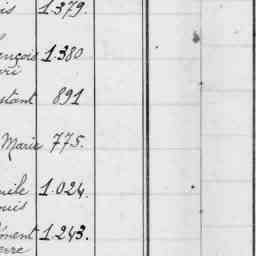 is 1.379.
ençois 1.380
stant 891
Marie 775.
uile 1.024.
ouis
ément 1.243.
erre